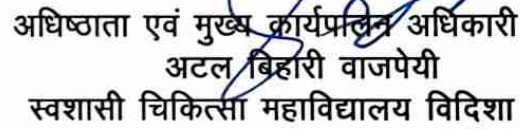 अधिष्ठाता एवं मुख्य कार्यपालन अधिकारी
अटल बिहारी वाजपेयी
स्वशासी चिकित्सा महाविद्यालय विदिशा